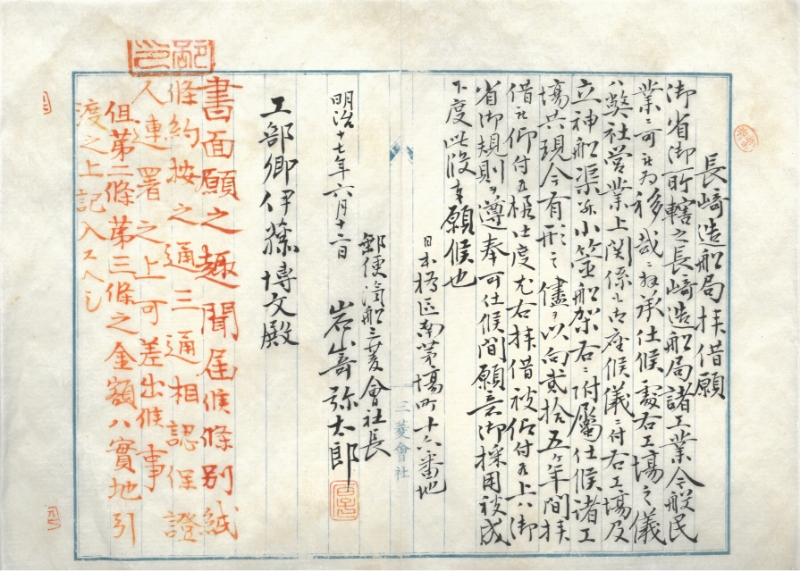 長崎造船局拝借願
御省御所轄之長崎造船局諸工業今般民
業ニ可被為移哉ニ拝承仕候處右工場之儀
ハ弊社営業上関係も有座候儀ニ付右工場及
立神船渠并小菅船架右ニ付属仕候諸工
場共現今有形之儘ヲ以向貳拾五ヶ年間拝
借被仰付度尤右拝借被仰付候上ハ御
省御規則ヲ遵奉可仕候間願意御採用被成
下度此段奉願候也
日本橋区南茅場町十六番地
郵便汽船三菱會社長
明治十七年六月十二日 岩崎弥太郎
工部卿伊藤博文殿
三菱會社
書面願之趣聞届候條別紙
條約按之通三通相認保證
人連署之上可差出候事
但第二條第三條之金額ハ實地引
渡之上記入スヘシ